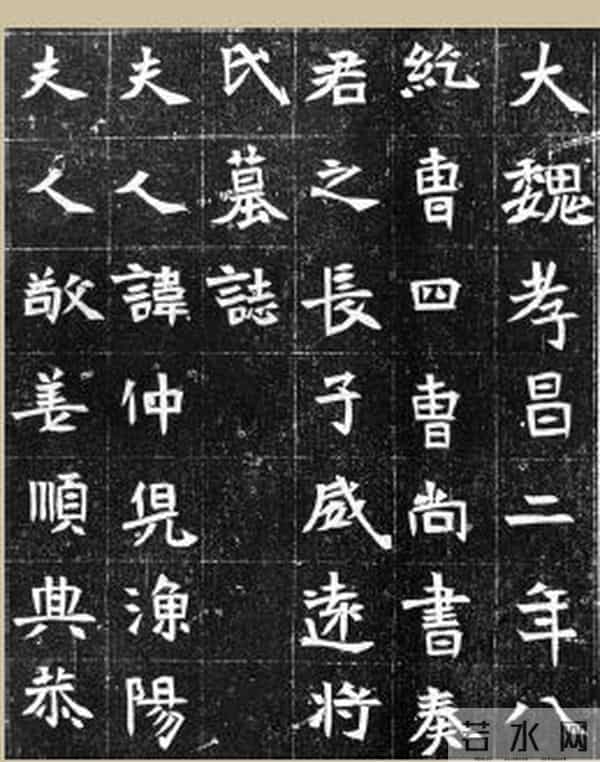 大魏孝昌二年八
紇曹四曹尚書奏
君之長子威遠將
氏墓誌
夫人諱仲兒漁陽
夫人敬姜順典恭
若水网